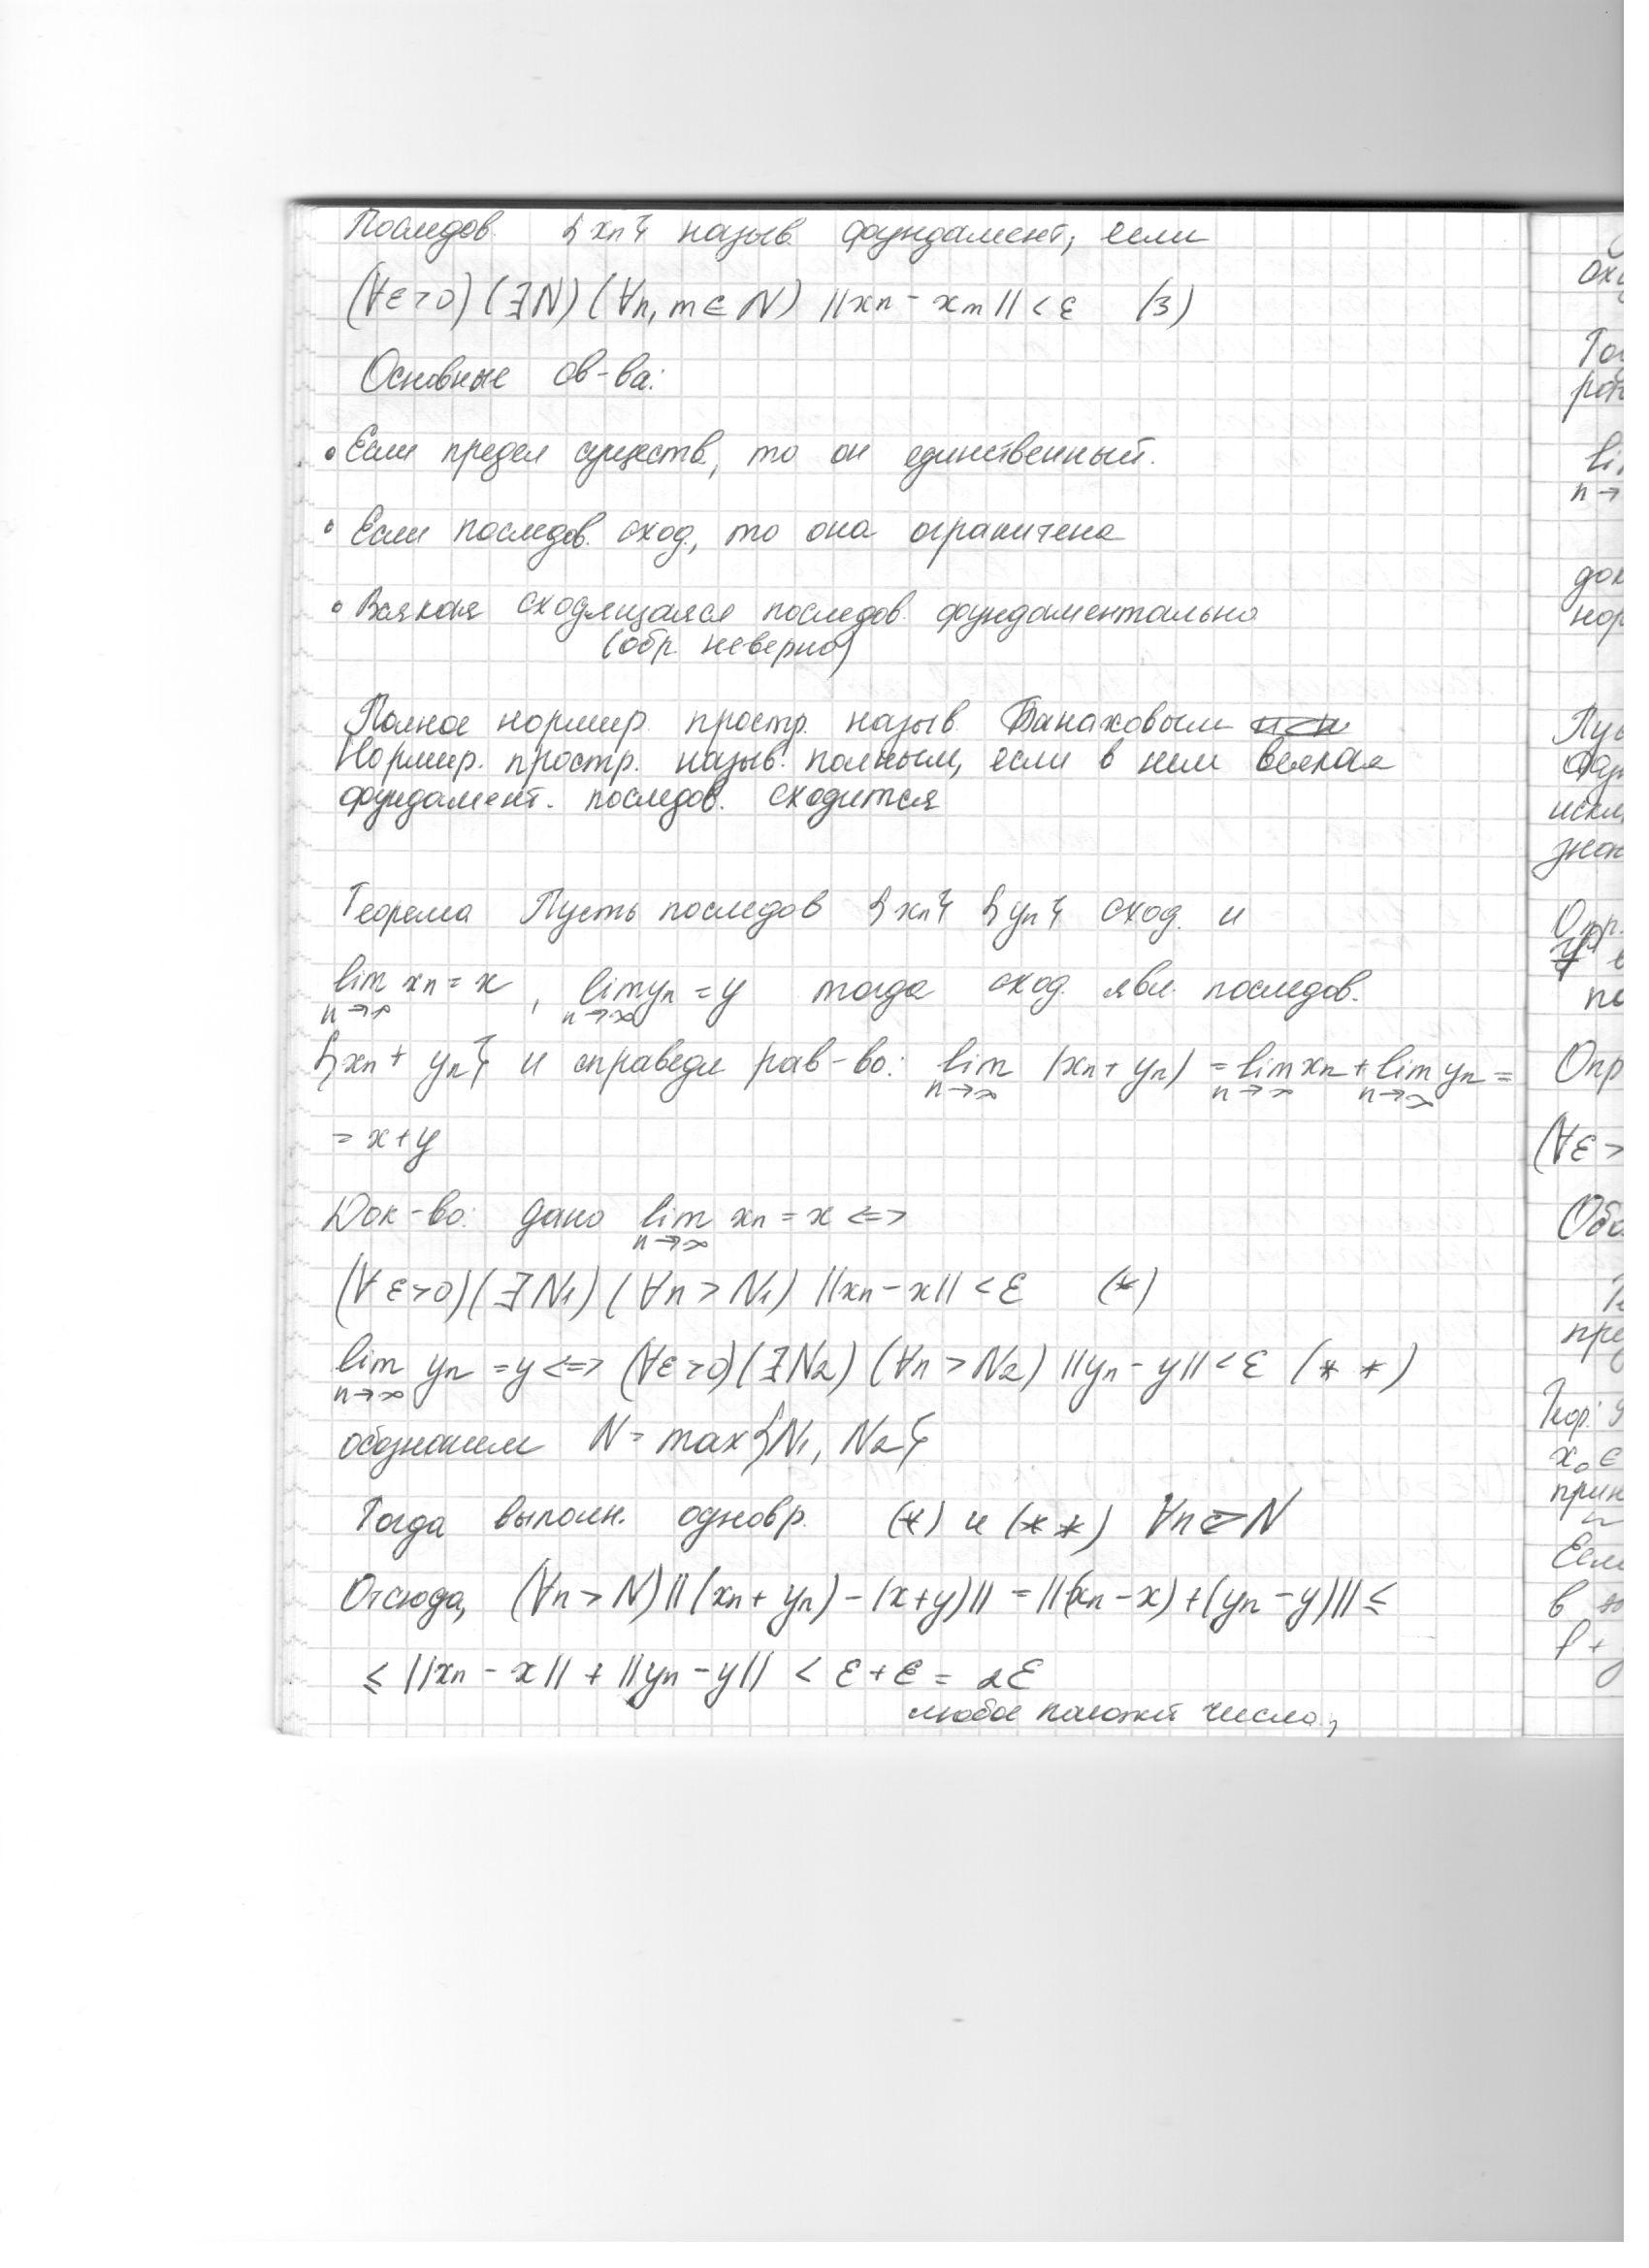 Последов. {xn} назыв. фундамент., если
(∀ε>0) (∃N) (∀n, m ∈ N) ||xn - xm|| < ε (3)
Основные св-ва:
• Если предел существ., то он единственный.
• Если последов. сход., то она ограничена
• Всякая сходящаяся последов. фундаментально
(обр. неверно)
Полное нормир. простр. назыв. Банаховым
Нормир. простр. назыв. полным, если в нем всякая
фундамент. последов. сходится
Теорема Пусть последов {xn} {yn} сход. и
lim xn = x, lim yn = y тогда сход. явл. последов.
n→∞ n→∞
{xn + yn} и справедл рав-во: lim (xn + yn) = lim xn + lim yn =
n→∞ n→∞ n→∞
= x+y
Док-во: дано lim xn = x <=>
n→∞
(∀ε>0) (∃N1) (∀n > N1) ||xn - x|| < ε (*)
lim yn = y <=> (∀ε>0) (∃N2) (∀n > N2) ||yn - y|| < ε (* *)
n→∞
обозначим N = max{N1, N2}
Тогда выполн. одновр. (*) и (* *) ∀n > N
Отсюда, (∀n > N) ||(xn + yn) - (x+y)|| = ||(xn - x) + (yn - y)|| ≤
≤ ||xn - x|| + ||yn - y|| < ε + ε = 2ε
любое положит число,